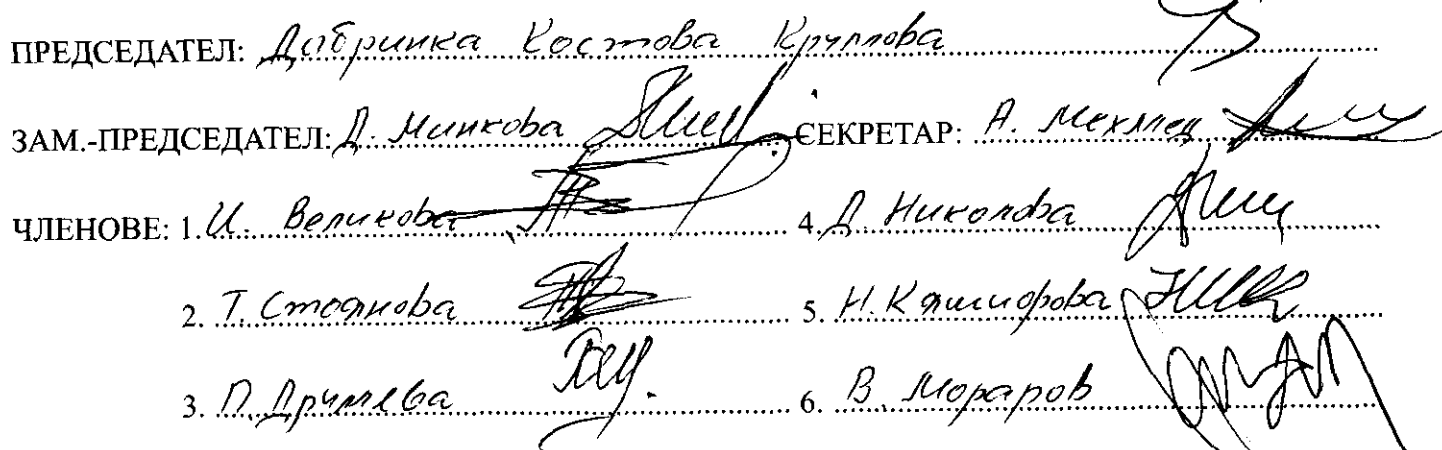 ПРЕДСЕДАТЕЛ: Добринка Костова Круглова
ЗАМ.-ПРЕДСЕДАТЕЛ: Д. Минкова СЕКРЕТАР: А. Мехмед
ЧЛЕНОВЕ: 1. И. Великова 4. Д. Николова
2. Т. Стоянова 5. Н.
3. П. 6. В.